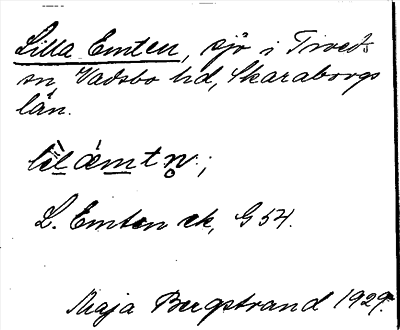 Lilla Emten, sjö i Tiveds
sn, Vadsbo hd, Skaraborgs
län.
L. Emten ek, G 54.
Maja Bergstrand 1929.